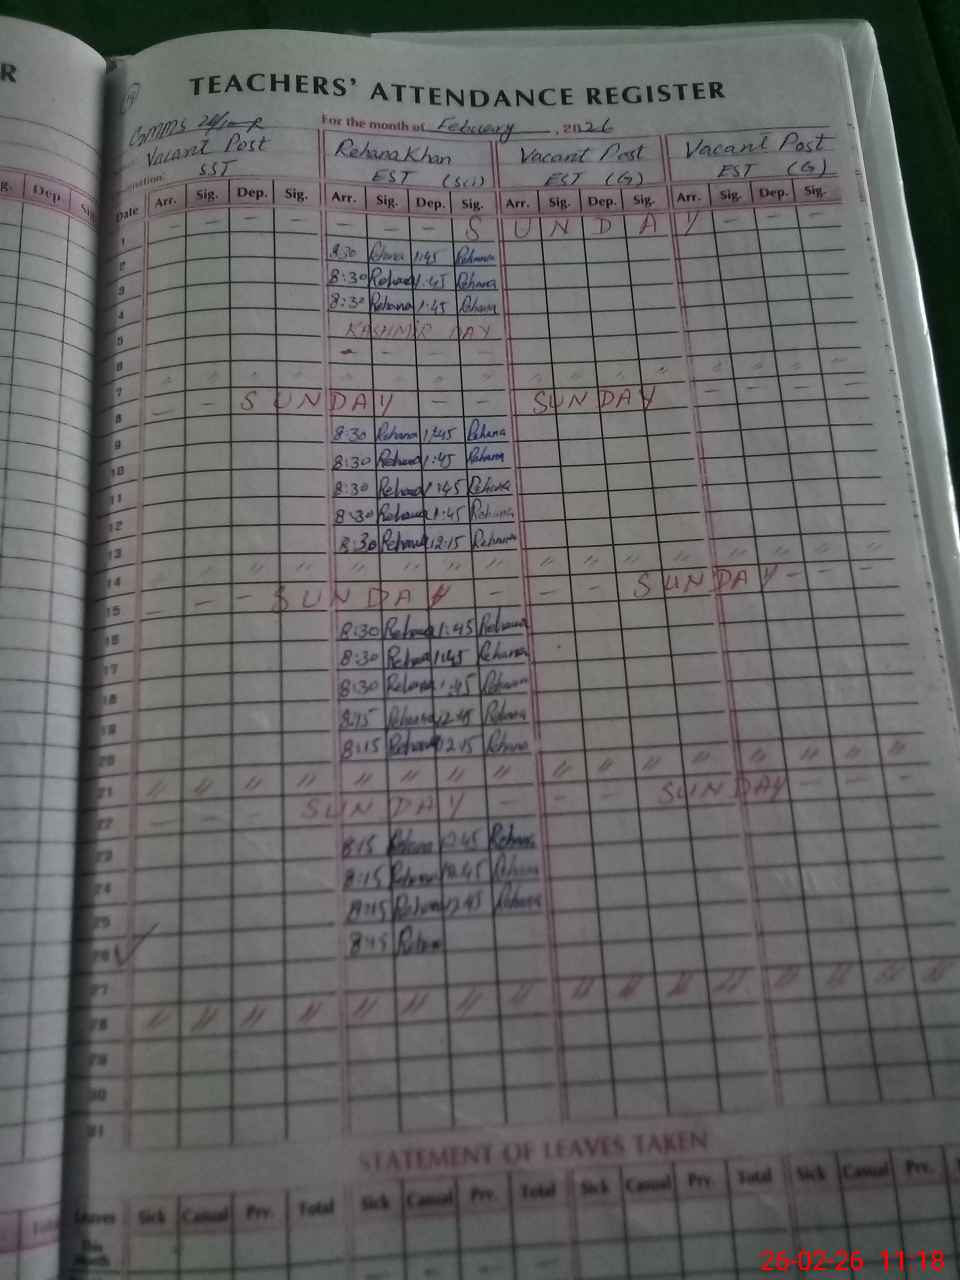 R
TEACHERS' ATTENDANCE REGISTER
For the month of February, 2026
Vacant Post Rehana Khan Vacant Post Vacant Post
SST EST (Sci) EST (G) EST (G)
g. Dep. Sig.
Date Arr. Sig. Dep. Sig. Arr. Sig. Dep. Sig. Arr. Sig. Dep. Sig. Arr. Sig. Dep. Sig.
1 — — — — — — — S U N D A Y — — —
2 8:30 Rehana 1:45 Rehana
3 8:30 Rehana 1:45 Rehana
4 8:30 Rehana 1:45 Rehana
5 KASHMIR DAY
6 - - - -
7 " " " " " " " " " " " " " " " "
8 — — S U N D A Y — — S U N D A Y — — — —
9 8:30 Rehana 1:45 Rehana
10 8:30 Rehana 1:45 Rehana
11 8:30 Rehana 1:45 Rehana
12 8:30 Rehana 1:45 Rehana
13 8:30 Rehana 12:15 Rehana
14 " " " " " " " " " " " " " " " "
15 — — — S U N D A Y — — — S U N D A Y — — —
16 8:30 Rehana 1:45 Rehana
17 8:30 Rehana 1:45 Rehana
18 8:30 Rehana 1:45 Rehana
19 8:15 Rehana 12:45 Rehana
20 8:15 Rehana 12:15 Rehana
21 " " " " " " " " " " " " " " " "
22 — — — S U N D A Y — — — S U N D A Y — — —
23 8:15 Rehana 12:45 Rehana
24 8:15 Rehana 12:45 Rehana
25 8:15 Rehana 12:45 Rehana
26 8:15 Rehana
27
28 " " " " " " " " " " " " " " " "
29
30
31
STATEMENT OF LEAVES TAKEN
Leaves Sick Casual Prv. Total Sick Casual Prv. Total Sick Casual Prv. Total Sick Casual Prv.
Total
This Month
26-02-26 11:18